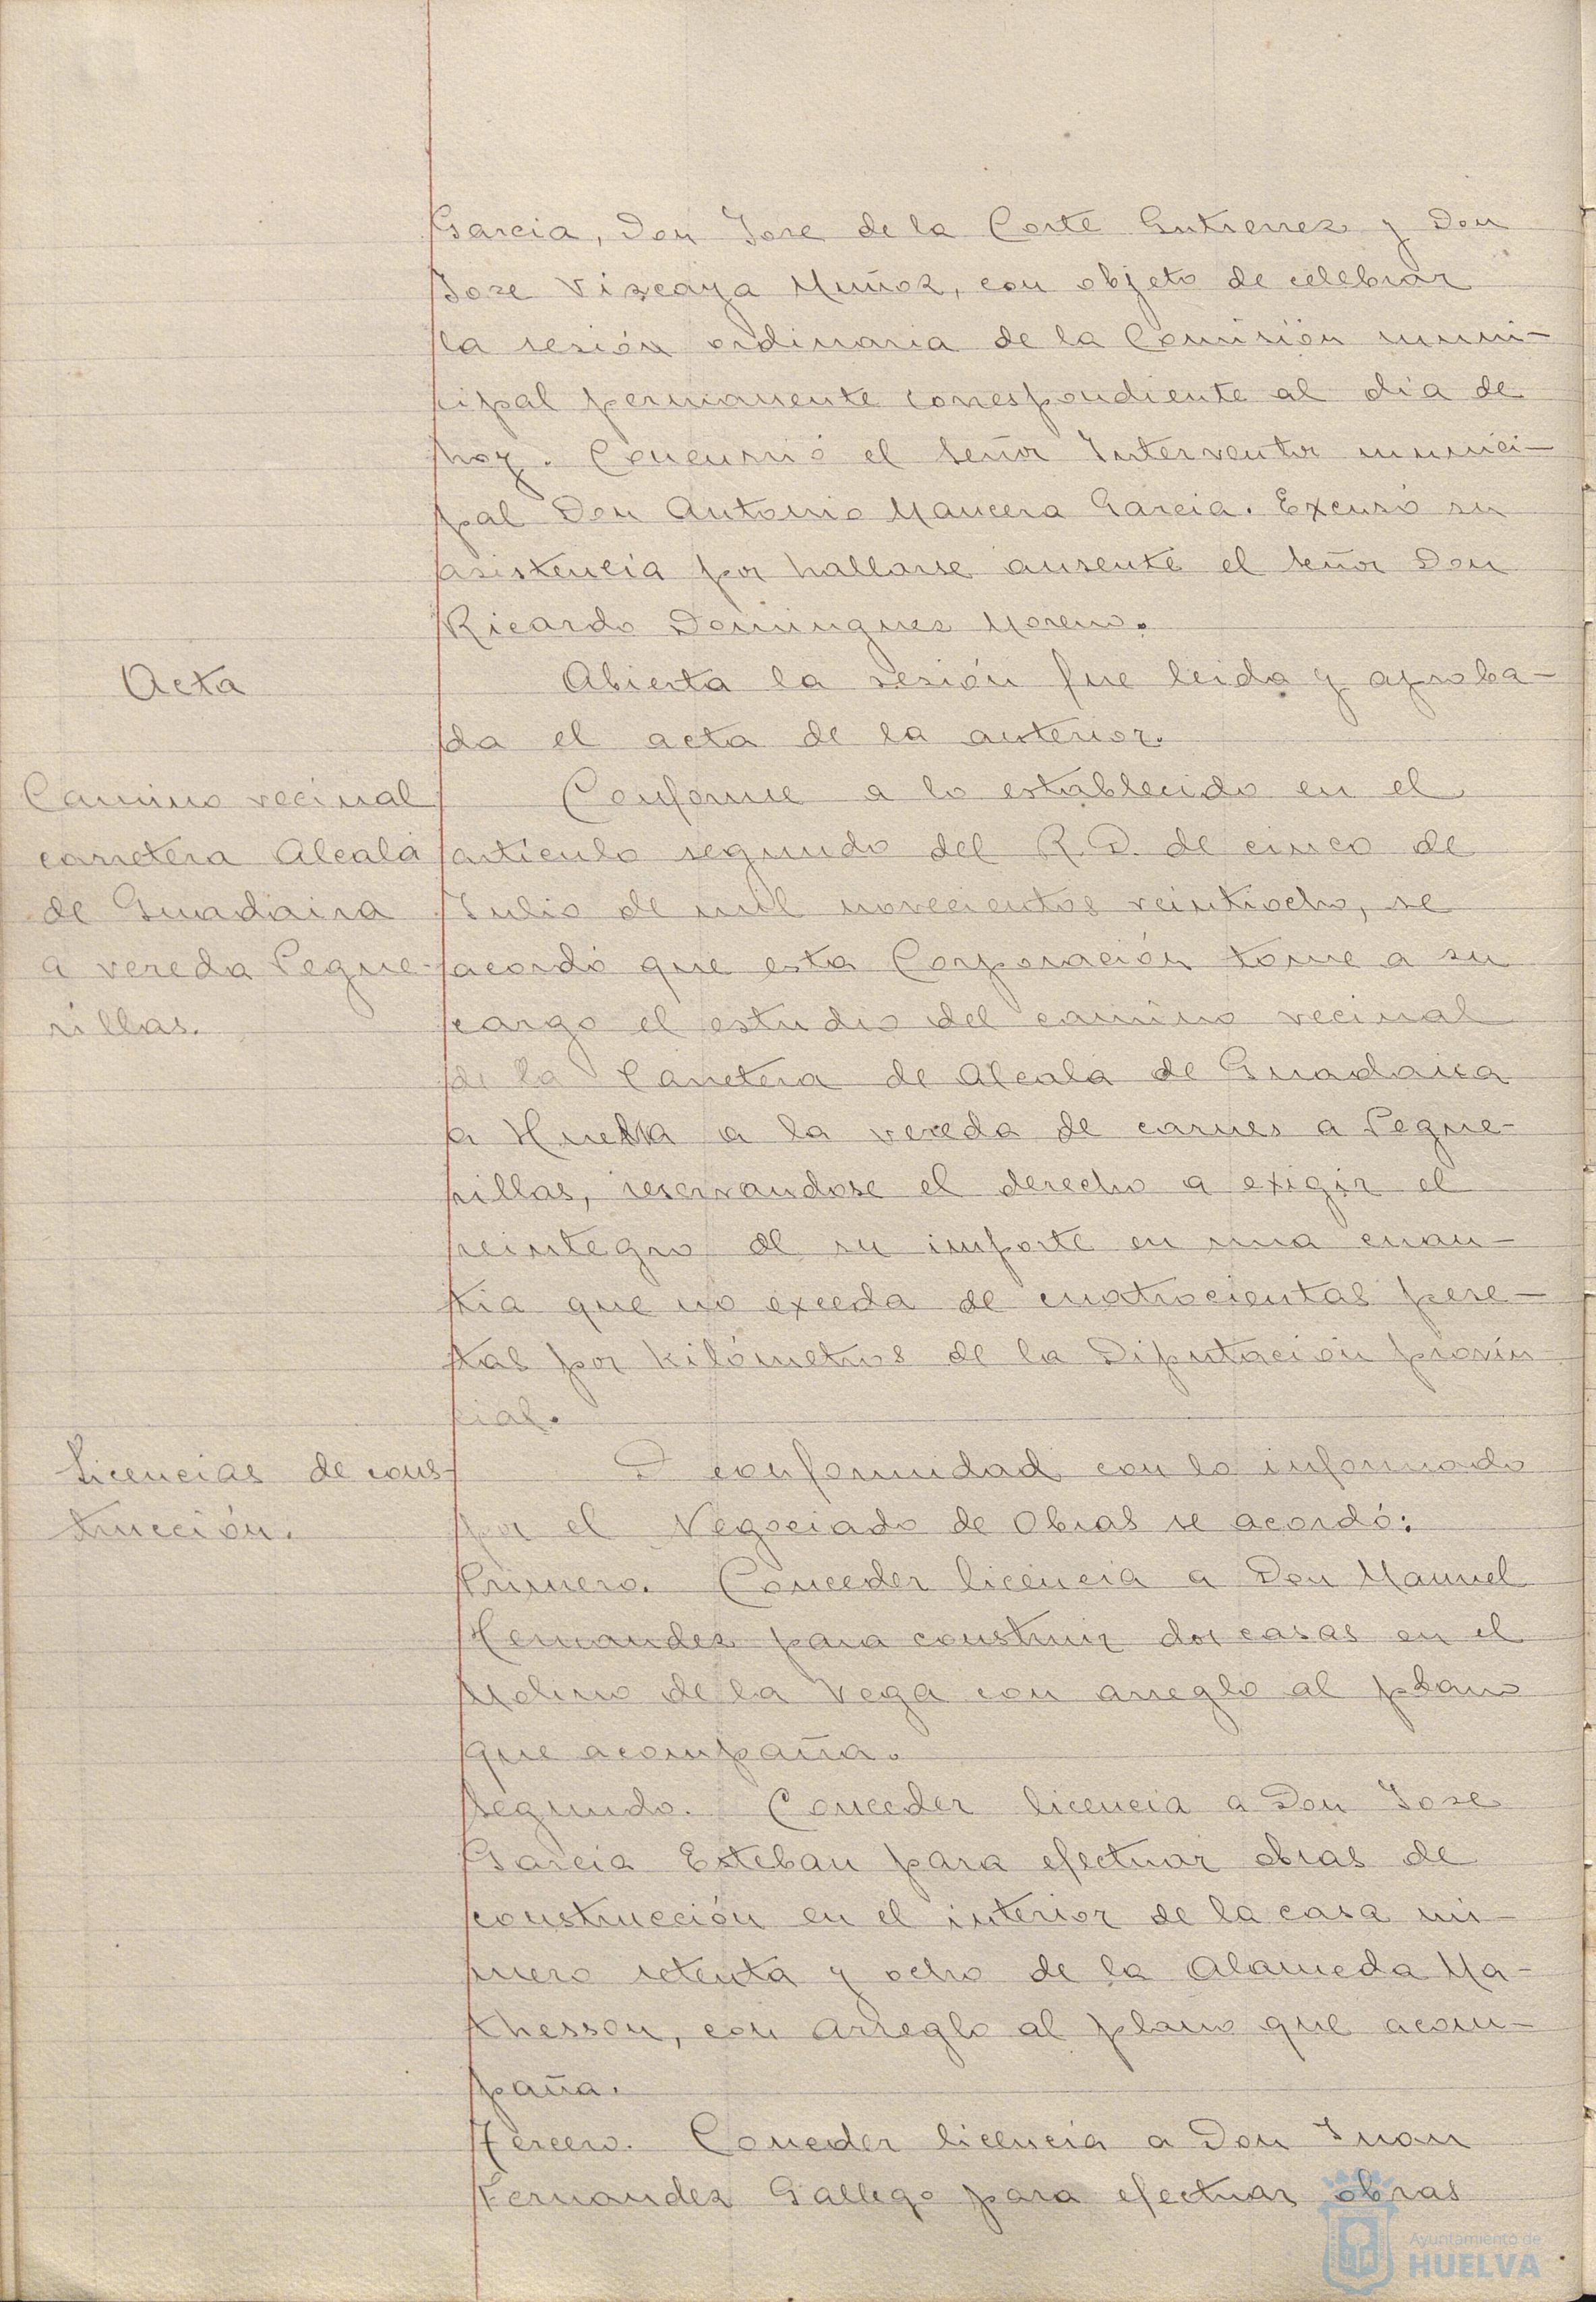 Garcia, Don Jose de la Corte Gutierrez y Don
Jose Vizcaya Muñoz, con objeto de celebrar
la sesión ordinaria de la Comisión muni-
cipal permanente correspondiente al día de
hoy. Concurrió el señor Interventor munici-
pal Don Antonio Mancera Garcia. Excusó su
asistencia por hallarse ausente el señor Don
Ricardo Dominguez Moreno.
Acta
Abierta la sesión fue leida y aproba-
da el acta de la anterior.
Camino vecinal
carretera Alcalá
de Guadaira
a vereda Pegue-
rillas.
Conforme a lo establecido en el
artículo segundo del R.D. de cinco de
Julio de mil novecientos veintiocho, se
acordó que esta Corporación tome a su
cargo el estudio del camino vecinal
de la Carretera de Alcalá de Guadaira
a Huelva a la vereda de carnes a Pegue-
rillas, reservandose el derecho a exigir el
reintegro de su importe en una cuan-
tia que no exceda de cuatrocientas pese-
tas por kilómetros de la Diputación provin
cial.
Licencias de cons-
trucción.
D conformidad con lo informado
por el Negociado de Obras se acordó:
Primero. Conceder licencia a Don Manuel
Hernandez para construir dos casas en el
Molino de la Vega con arreglo al plano
que acompaña.
Segundo. Conceder licencia a Don Jose
Garcia Esteban para efectuar obras de
construcción en el interior de la casa nú-
mero setenta y ocho de la Alameda Ma-
thesson, con arreglo al plano que acom-
paña.
Tercero. Conceder licencia a Don Juan
Fernandez Gallego para efectuar obras
Ayuntamiento de
HUELVA